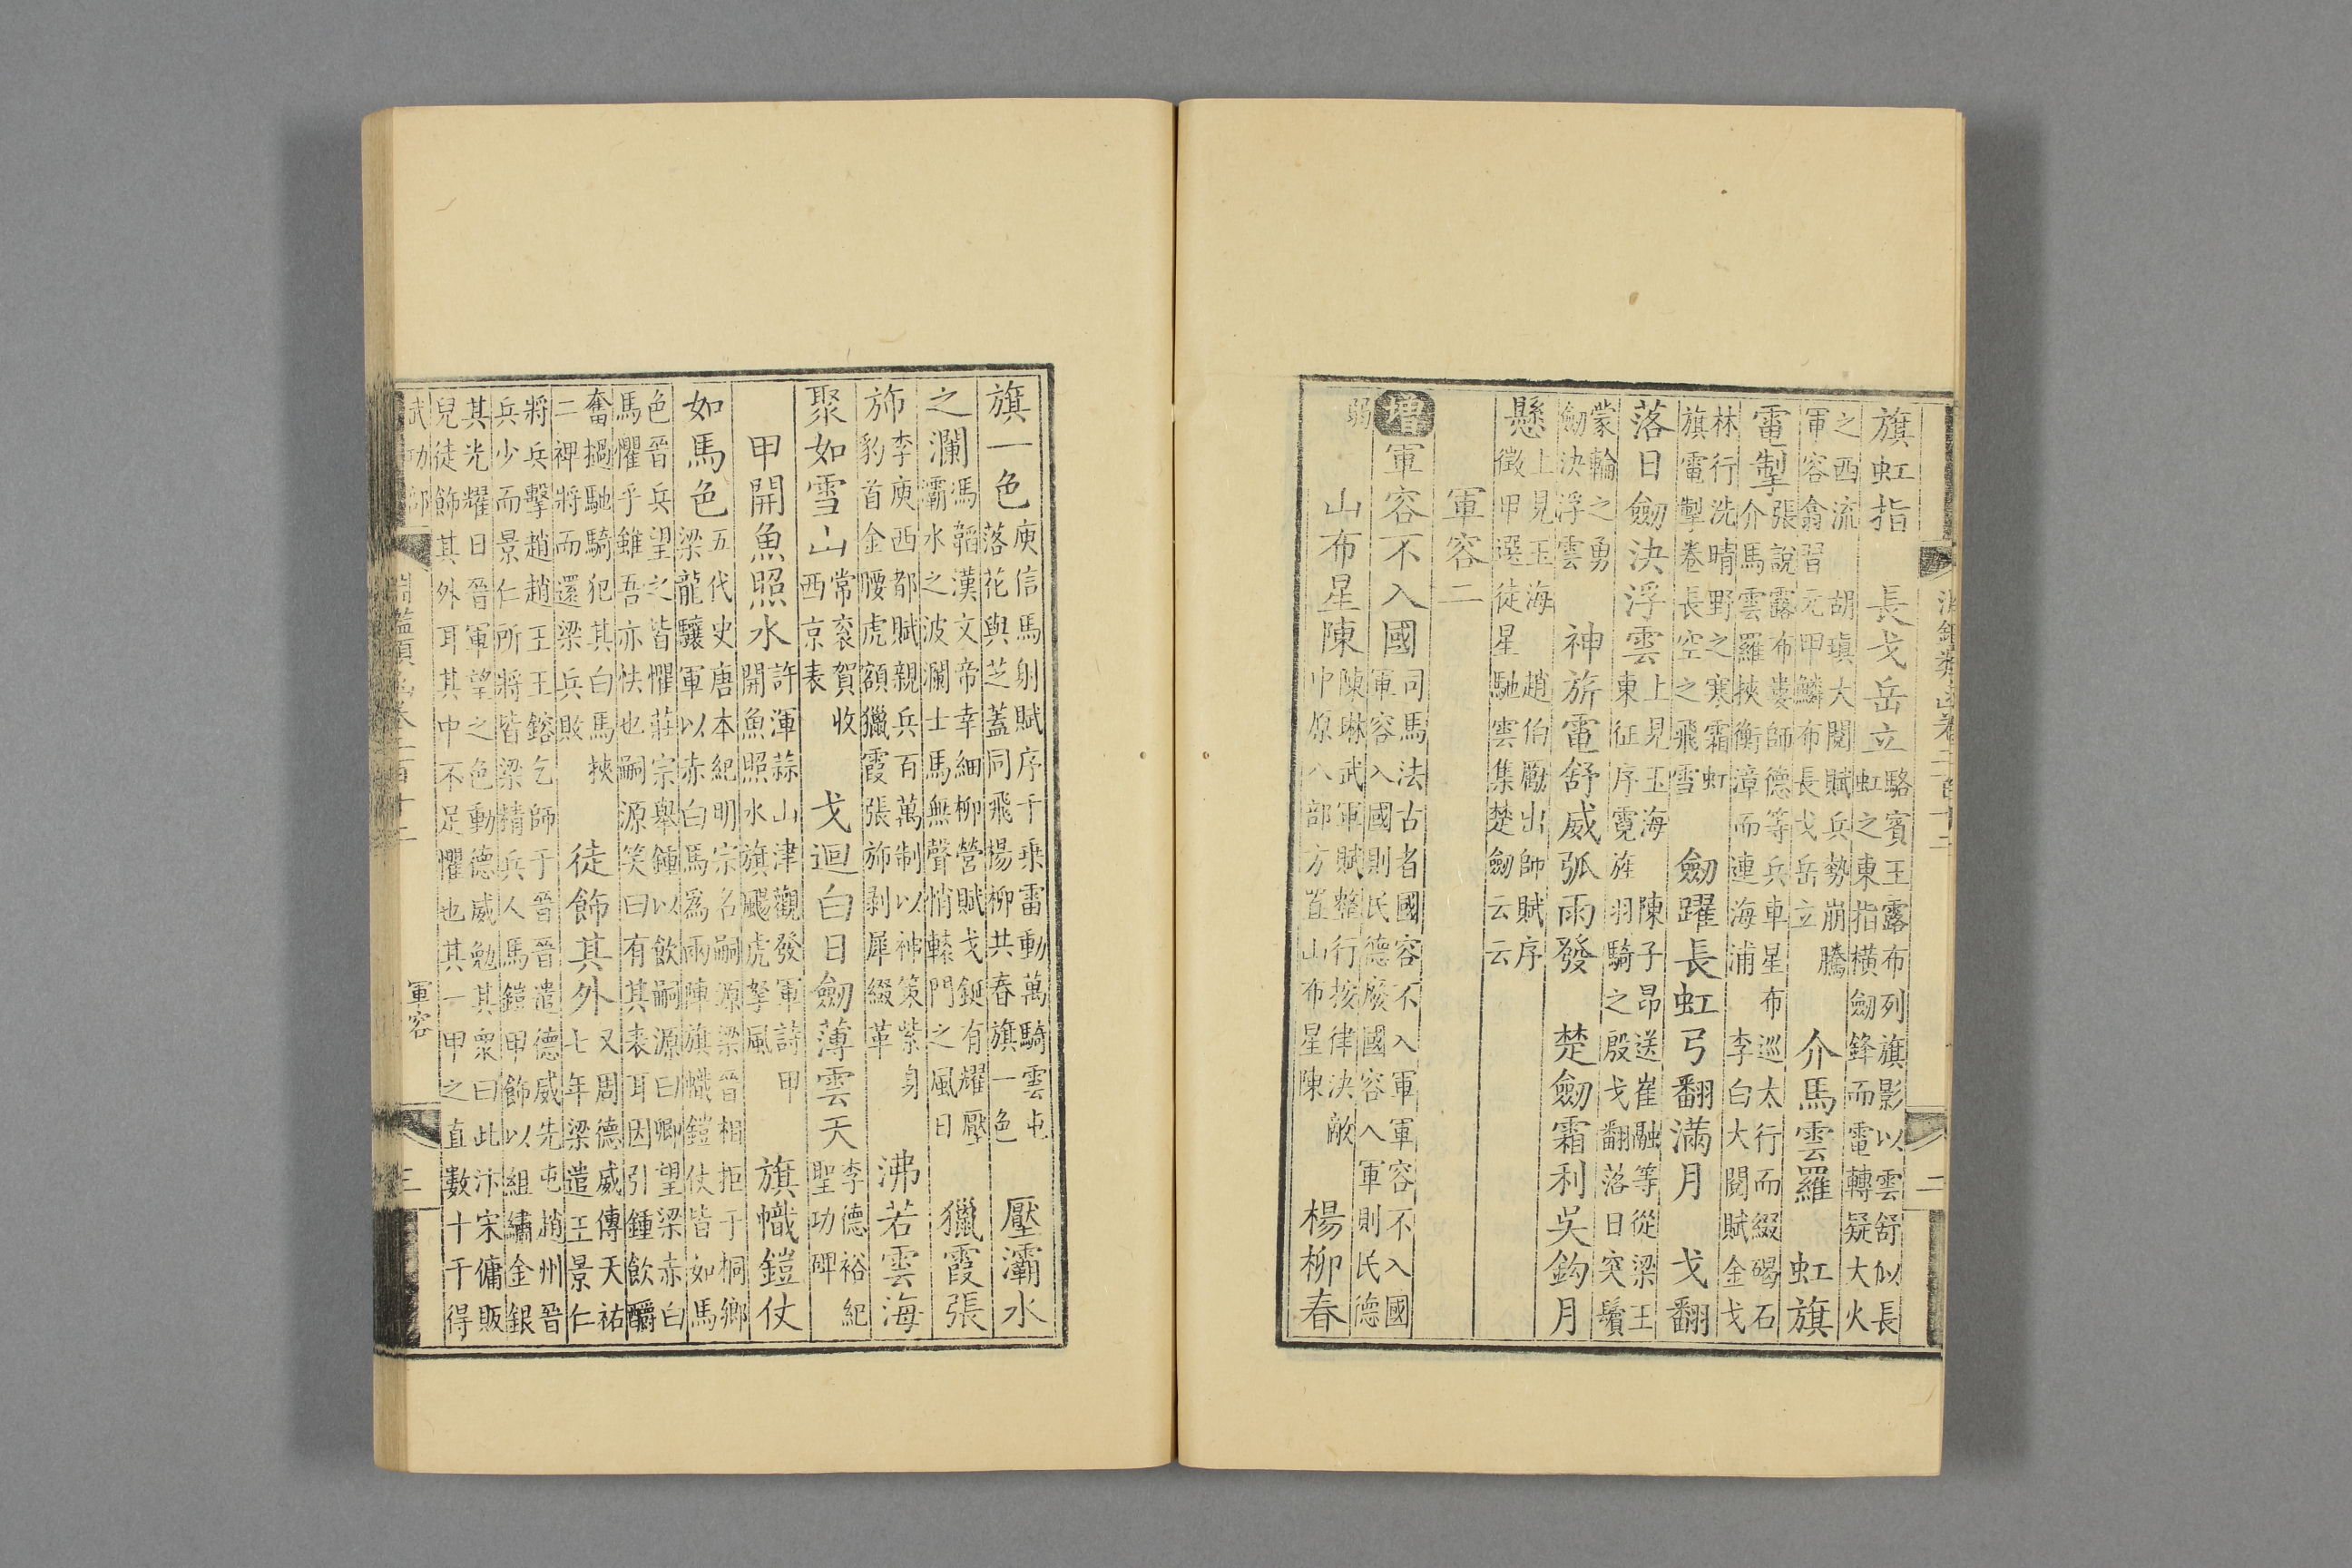 旗虹指　駱賓王露布列旗影以雲舒似長虹之東指橫劒鋒而電轉疑大火
之西流　長戈岳立　胡瑱大閱賦兵勢崩騰軍容翕習元甲鱗布長戈岳立　介馬雲羅　虹旗
電掣　張說露布婁師德等兵車星布巡太行而綴碣石介馬雲羅挾衡漳而連海浦　李白大閱賦金戈
林行洗晴野之寒霜虹旗電掣卷長空之飛雪　劒躍長虹弓翻滿月　戈翻
落日劒決浮雲　上見玉海　陳子昂送崔融等從梁王東征序霓旌羽騎之殷戈翻落日突鬢
蒙輪之勇劒決浮雲　神旂電舒威弧雨發　楚劒霜利吳鈎月
懸　上見玉海　趙伯勵出師賦序徵甲選徒星馳雲集楚劒云云
軍容二
增軍容不入國　司馬法古者國容不入軍軍容不入國軍容入國則民德廢國容入軍則民德
弱　山布星陳　陳琳武軍賦整行按律決敵中原八部方置山布星陳　楊柳春
旗一色　庾信馬射賦序千乘雷動萬騎雲屯落花與芝蓋同飛楊柳共春旗一色　壓灞水
之瀾　馮韜漢文帝幸細柳營賦戈鋋有耀壓灞水之波瀾士馬無聲悄轅門之風日　獵霞張
旆　李庾西都賦親兵百萬制以神策紫身豹首金腰虎額獵霞張旆剥犀綴革　沸若雲海
聚如雪山　常袞賀收西京表　戈迴白日劒薄雲天　李德裕紀聖功碑
甲開魚照水　許渾蒜山津觀發軍詩甲開魚照水旗颺虎拏風　旗幟鎧仗
如馬色　五代史唐本紀明宗名嗣源梁晉相拒于栢鄉梁龍驤軍以赤白馬爲兩陣旗幟鎧仗皆如馬
色晉兵望之皆懼莊宗舉鍾以飲嗣源曰卿望梁赤白馬懼乎雖吾亦怯也嗣源笑曰有其表耳因引鍾飲釂
奮撾馳騎犯其白馬挾二裨將而還梁兵敗　徒飾其外　又周德威傳天祐七年梁遣王景仁
將兵擊趙趙王王鎔乞師于晉晉遣德威先屯趙州晉兵少而景仁所將皆梁精兵人馬鎧甲飾以組繡金銀
其光耀日晉軍望之色動德威勉其衆曰此汴宋傭販兒徒飾其外耳其中不足懼也其一甲之直數十千得
武功部
軍容
三